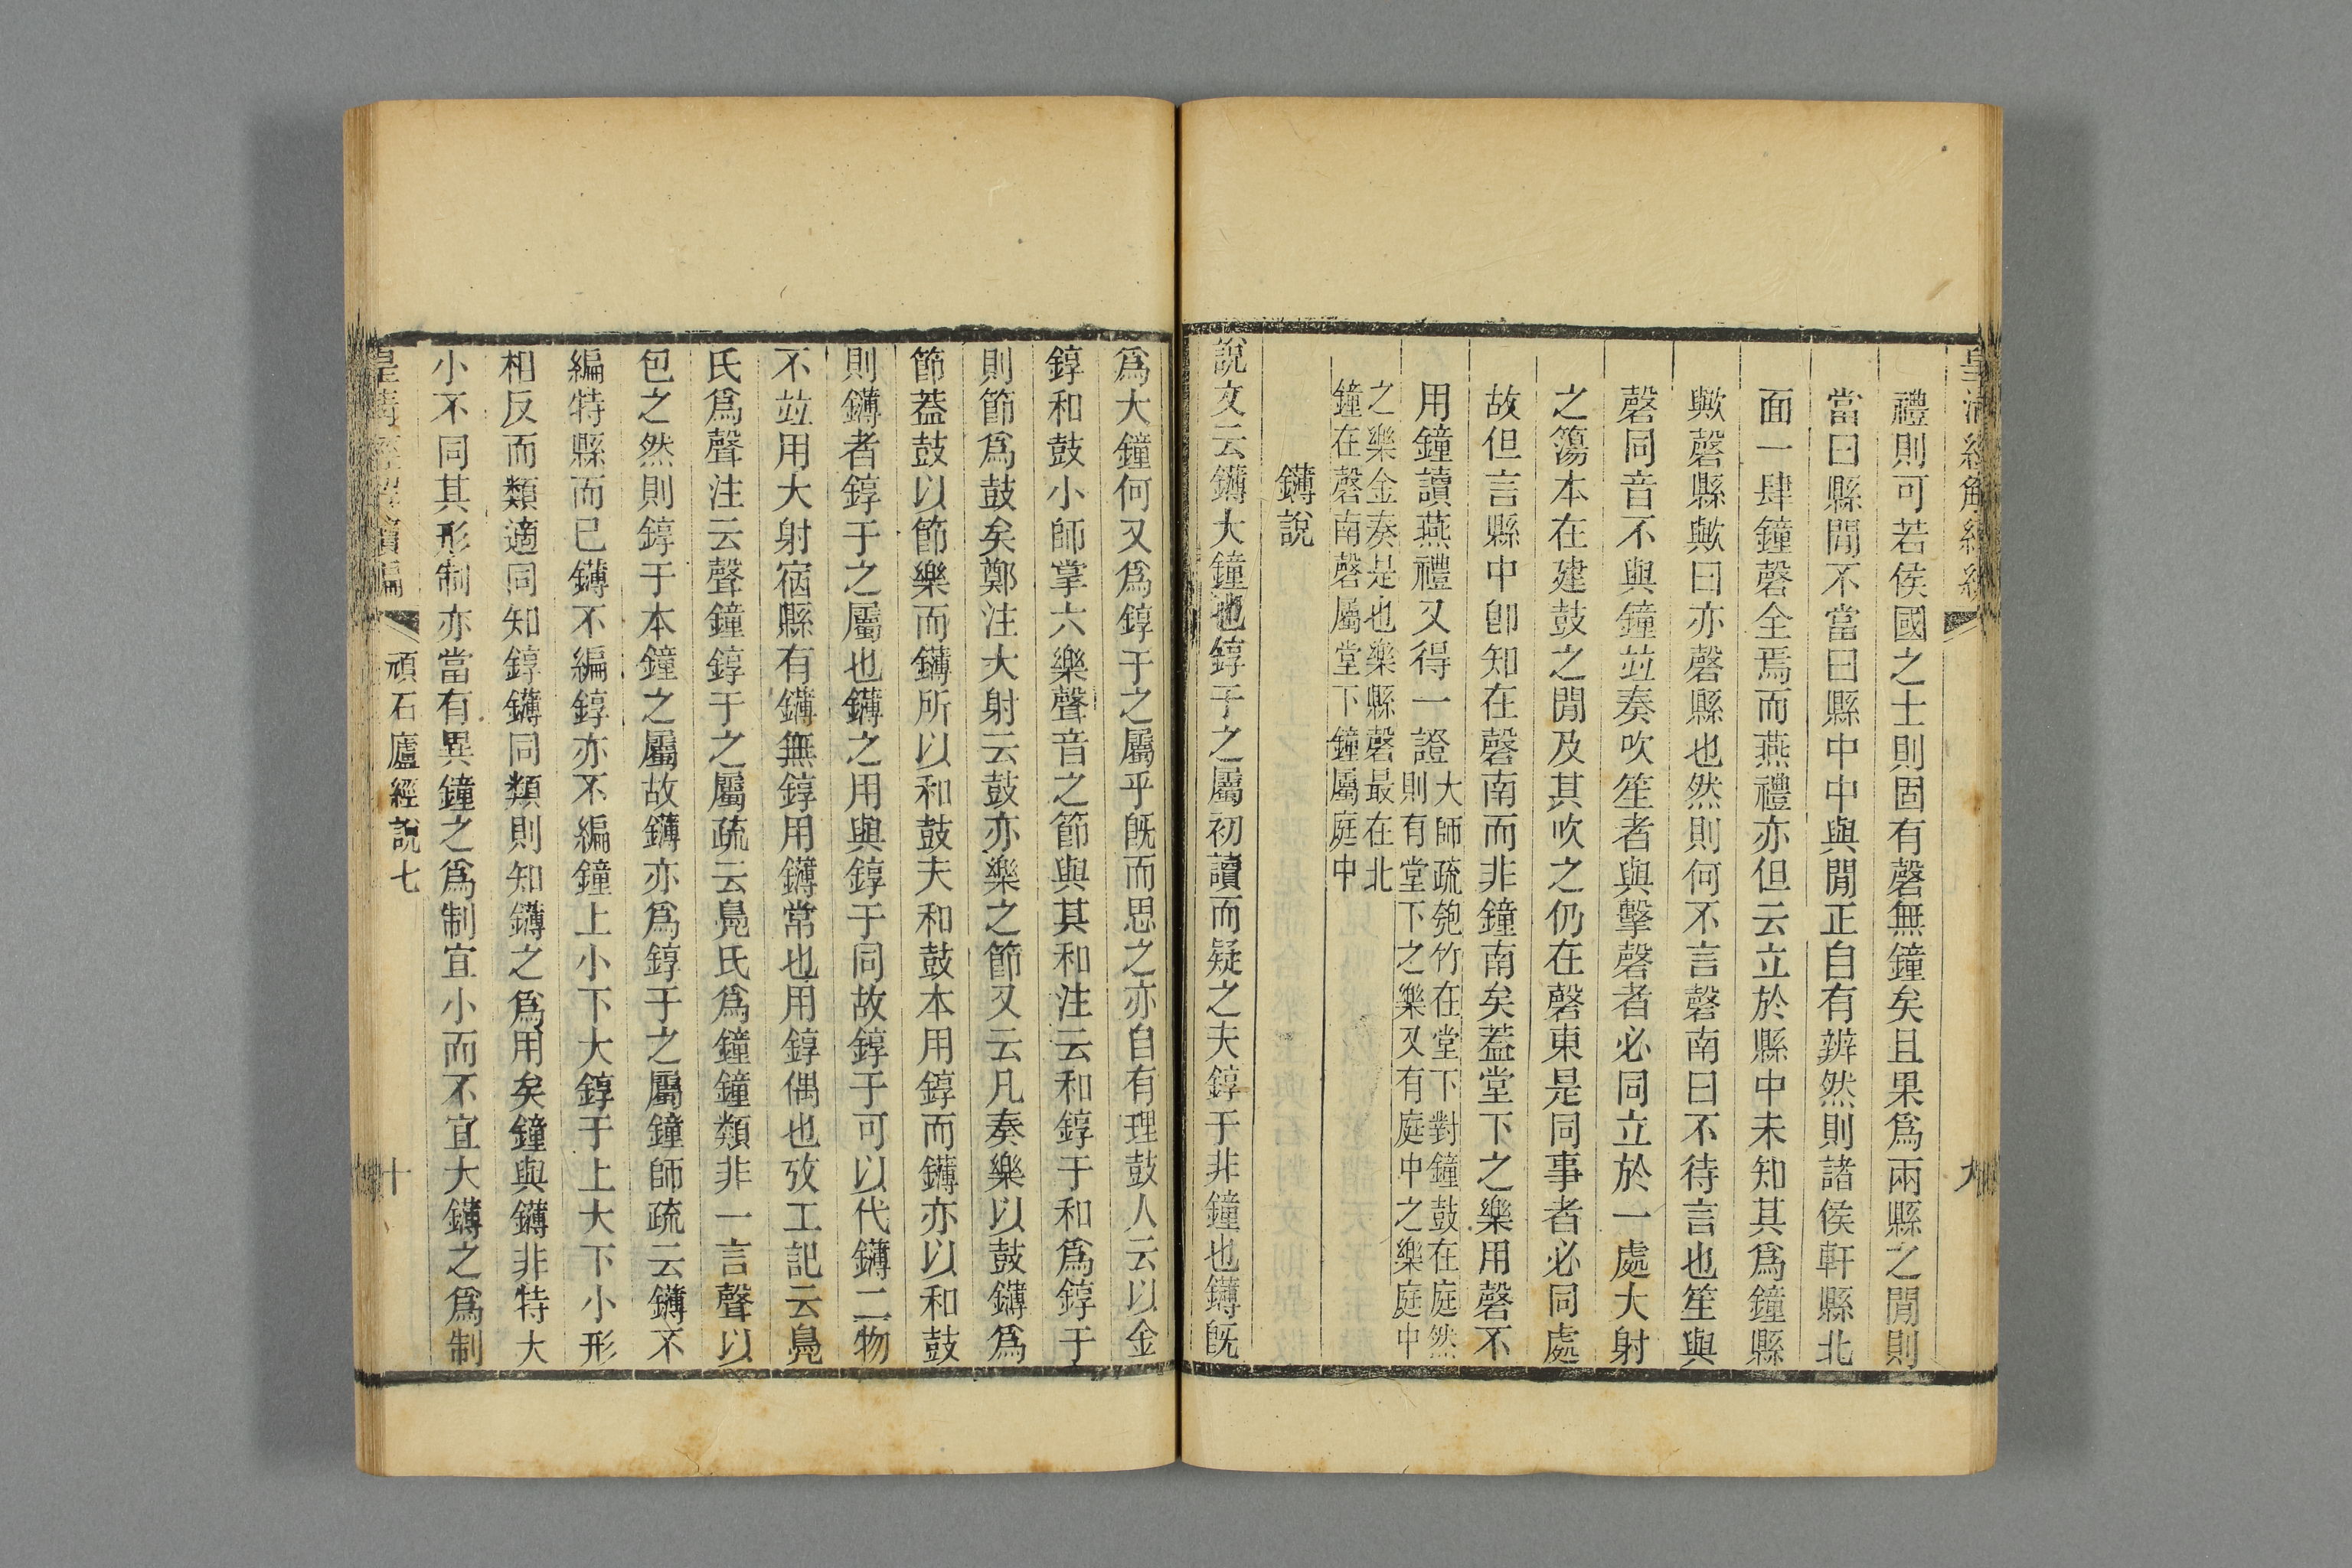 禮則可若侯國之士則固有磬無鐘矣且果爲兩縣之閒則
當曰縣閒不當曰縣中中與閒正自有辨然則諸侯軒縣北
面一肆鐘磬全焉而燕禮亦但云立於縣中未知其爲鐘縣
歟磬縣歟曰亦磬縣也然則何不言磬南曰不待言也笙與
磬同音不與鐘竝奏吹笙者與擊磬者必同立於一處大射
之簜本在建鼓之閒及其吹之仍在磬東是同事者必同處
故但言縣中卽知在磬南而非鐘南矣葢堂下之樂用磬不
用鐘讀燕禮又得一證大師疏匏竹在堂下對鐘鼓在庭然
則有堂下之樂又有庭中之樂庭中
之樂金奏是也樂縣磬最在北
鐘在磬南磬屬堂下鐘屬庭中
鑮說
說文云鑮大鐘也錞于之屬初讀而疑之夫錞于非鐘也鑮旣
爲大鐘何又爲錞于之屬乎旣而思之亦自有理鼓人云以金
錞和鼓小師掌六樂聲音之節與其和注云和錞于和爲錞于
則節爲鼓矣鄭注大射云鼓亦樂之節又云凡奏樂以鼓鑮爲
節葢鼓以節樂而鑮所以和鼓夫和鼓本用錞而鑮亦以和鼓
則鑮者錞于之屬也鑮之用與錞于同故錞于可以代鑮二物
不竝用大射宿縣有鑮無錞用鑮常也用錞偶也攷工記云鳧
氏爲聲注云聲鐘錞于之屬疏云鳧氏爲鐘鐘類非一言聲以
包之然則錞于本鐘之屬故鑮亦爲錞于之屬鐘師疏云鑮不
編特縣而已鑮不編錞亦不編鐘上小下大錞于上大下小形
相反而類適同知錞鑮同類則知鑮之爲用矣鐘與鑮非特大
小不同其形制亦當有異鐘之爲制宜小而不宜大鑮之爲制
皇清經解續編 頑石廬經說七 十